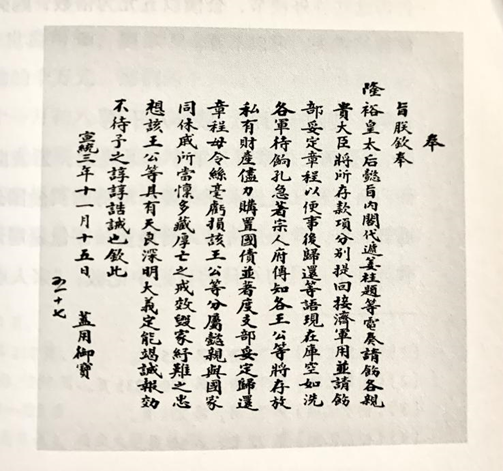 奉
旨朕欽奉
隆裕皇太后懿旨內閣代遞姜桂題等電奏請飭各親
貴大臣將所存款項分別提回接濟軍用並請飭
部妥定章程以便事後歸還等語現在庫空如洗
各軍待餉孔急著宗人府傳知各王公等將存放
私有財產儘力購置國債並著度支部妥定歸還
章程毋令絲毫虧損該王公等分屬懿親與國家
同休戚所當懍多藏厚亡之戒效毀家紓難之忠
想該王公等具有天良深明大義定能竭誠報効
不待予之諄諄誥誡也欽此
宣統三年十月十五日 蓋用御寶